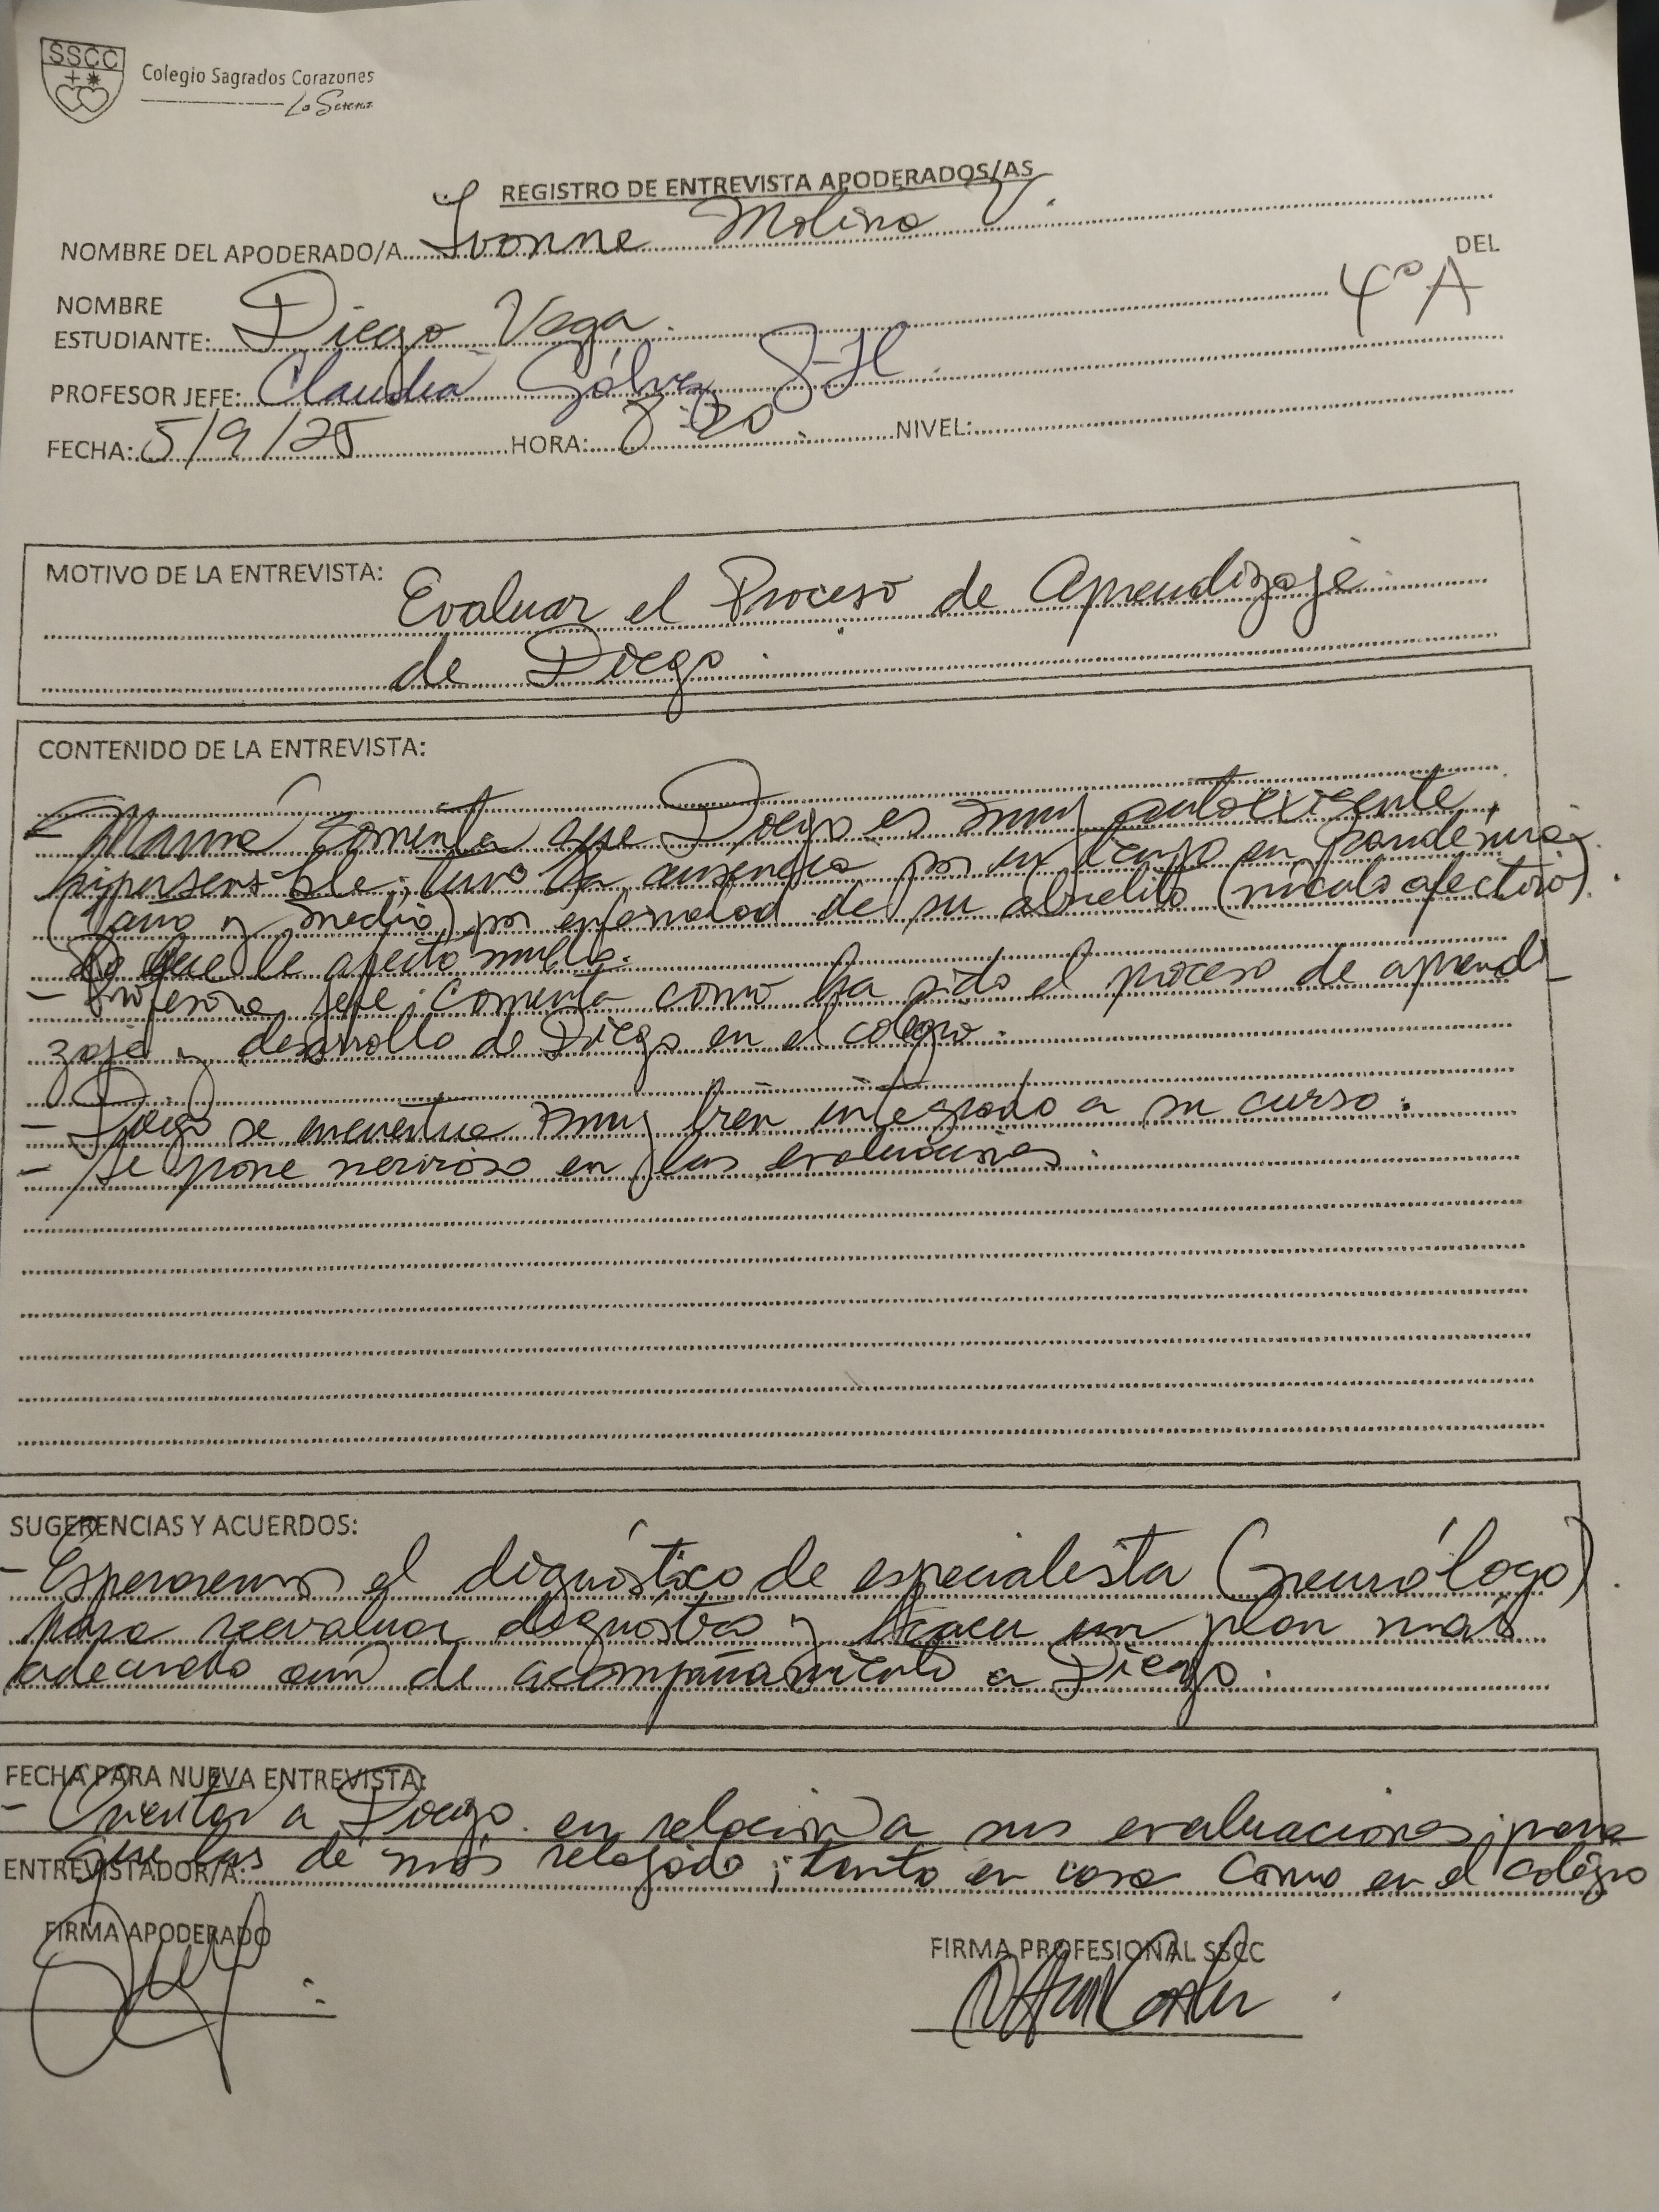 SSCC
Colegio Sagrados Corazones
La Serena
REGISTRO DE ENTREVISTA APODERADOS/AS
NOMBRE DEL APODERADO/A Ivonne Molina V.
DEL
NOMBRE
ESTUDIANTE: Diego Vega. 4°A
PROFESOR JEFE: Claudia Gálvez
FECHA: 5/9/25 HORA: 8:20. NIVEL:
MOTIVO DE LA ENTREVISTA:
Evaluar el Proceso de Aprendizaje
de Diego.
CONTENIDO DE LA ENTREVISTA:
- Mamá comenta que Diego es muy autoexigente,
hipersensible; tuvo la ausencia por un tiempo en pandemia
(1 año y medio) por enfermedad de su abuelito (vínculo afectivo).
Lo que le afectó mucho.
- Profesora jefe; comenta como ha sido el proceso de aprendi
zaje y desarrollo de Diego en el colegio.
- Diego se encuentra muy bien integrado a su curso.
- Se pone nervioso en las evaluaciones.
SUGERENCIAS Y ACUERDOS:
- Esperaremos el dignóstico de especialista (neurólogo).
para reevaluar diagnóstico y hacer un plan más
adecuado aún de acompañamiento a Diego.
FECHA PARA NUEVA ENTREVISTA:
- Orientar a Diego en relación a sus evaluaciones; para
que las dé más relajado; tanto en casa como en el colegio
ENTREVISTADOR/A:
FIRMA APODERADO
FIRMA PROFESIONAL SSCC